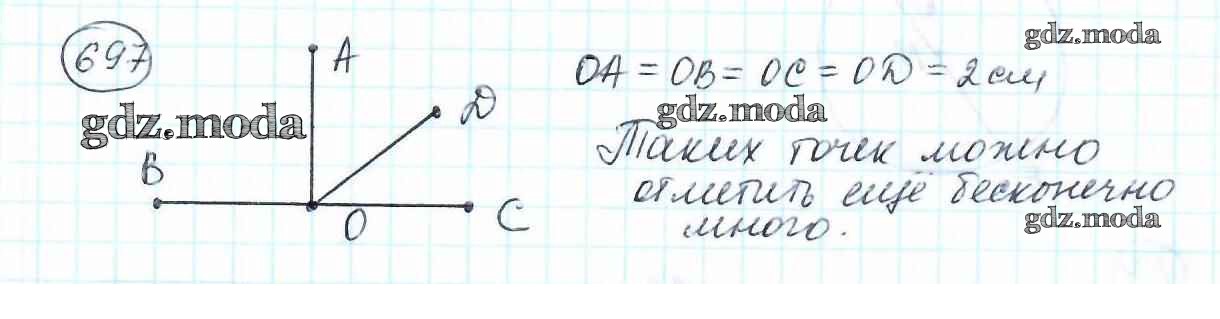 697
A
D
B
O
C
gdz.moda
OA = OB = OC = OD = 2 см
gdz.moda
gdz.moda
Таких точек можно
отметить ещё бесконечно
много.
gdz.moda